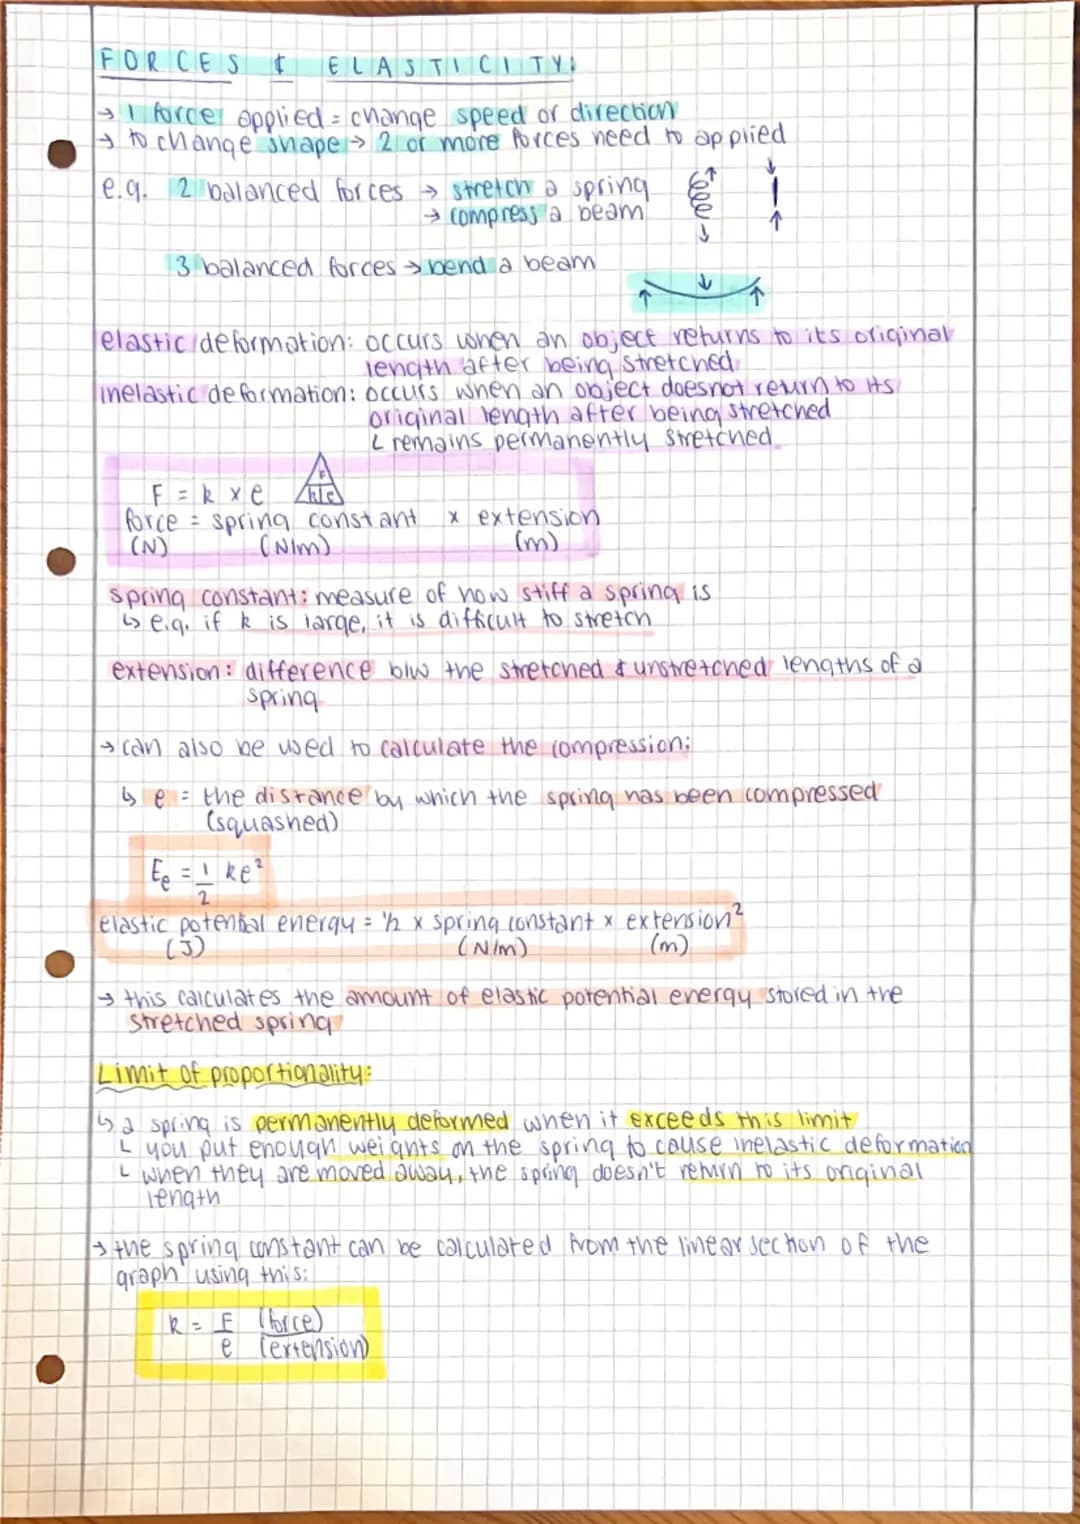 FORCES & ELASTICITY:
→ 1 force applied = change speed or direction
→ to change shape → 2 or more forces need to applied
e.g. 2 balanced forces → stretch a spring
→ compress a beam
3 balanced forces → bend a beam
elastic deformation: occurs when an object returns to its original
length after being stretched
inelastic deformation: occurs when an object doesnot return to its
original length after being stretched
└ remains permanently stretched
F
k|e
F = k x e
force = spring constant x extension
(N) (N/m) (m)
spring constant: measure of how stiff a spring is
↳ e.g. if k is large, it is difficult to stretch
extension: difference b/w the stretched & unstretched lengths of a
spring
→ can also be used to calculate the compression:
↳ e = the distance by which the spring has been compressed
(squashed)
Eₑ = 1/2 ke²
elastic potential energy = 1/2 x spring constant x extension²
(J) (N/m) (m)
→ this calculates the amount of elastic potential energy stored in the
stretched spring
Limit of proportionality:
↳ a spring is permanently deformed when it exceeds this limit
└ you put enough weights on the spring to cause inelastic deformation
└ when they are moved away, the spring doesn't return to its original
length
→ the spring constant can be calculated from the linear section of the
graph using this:
k = F (force)
e (extension)